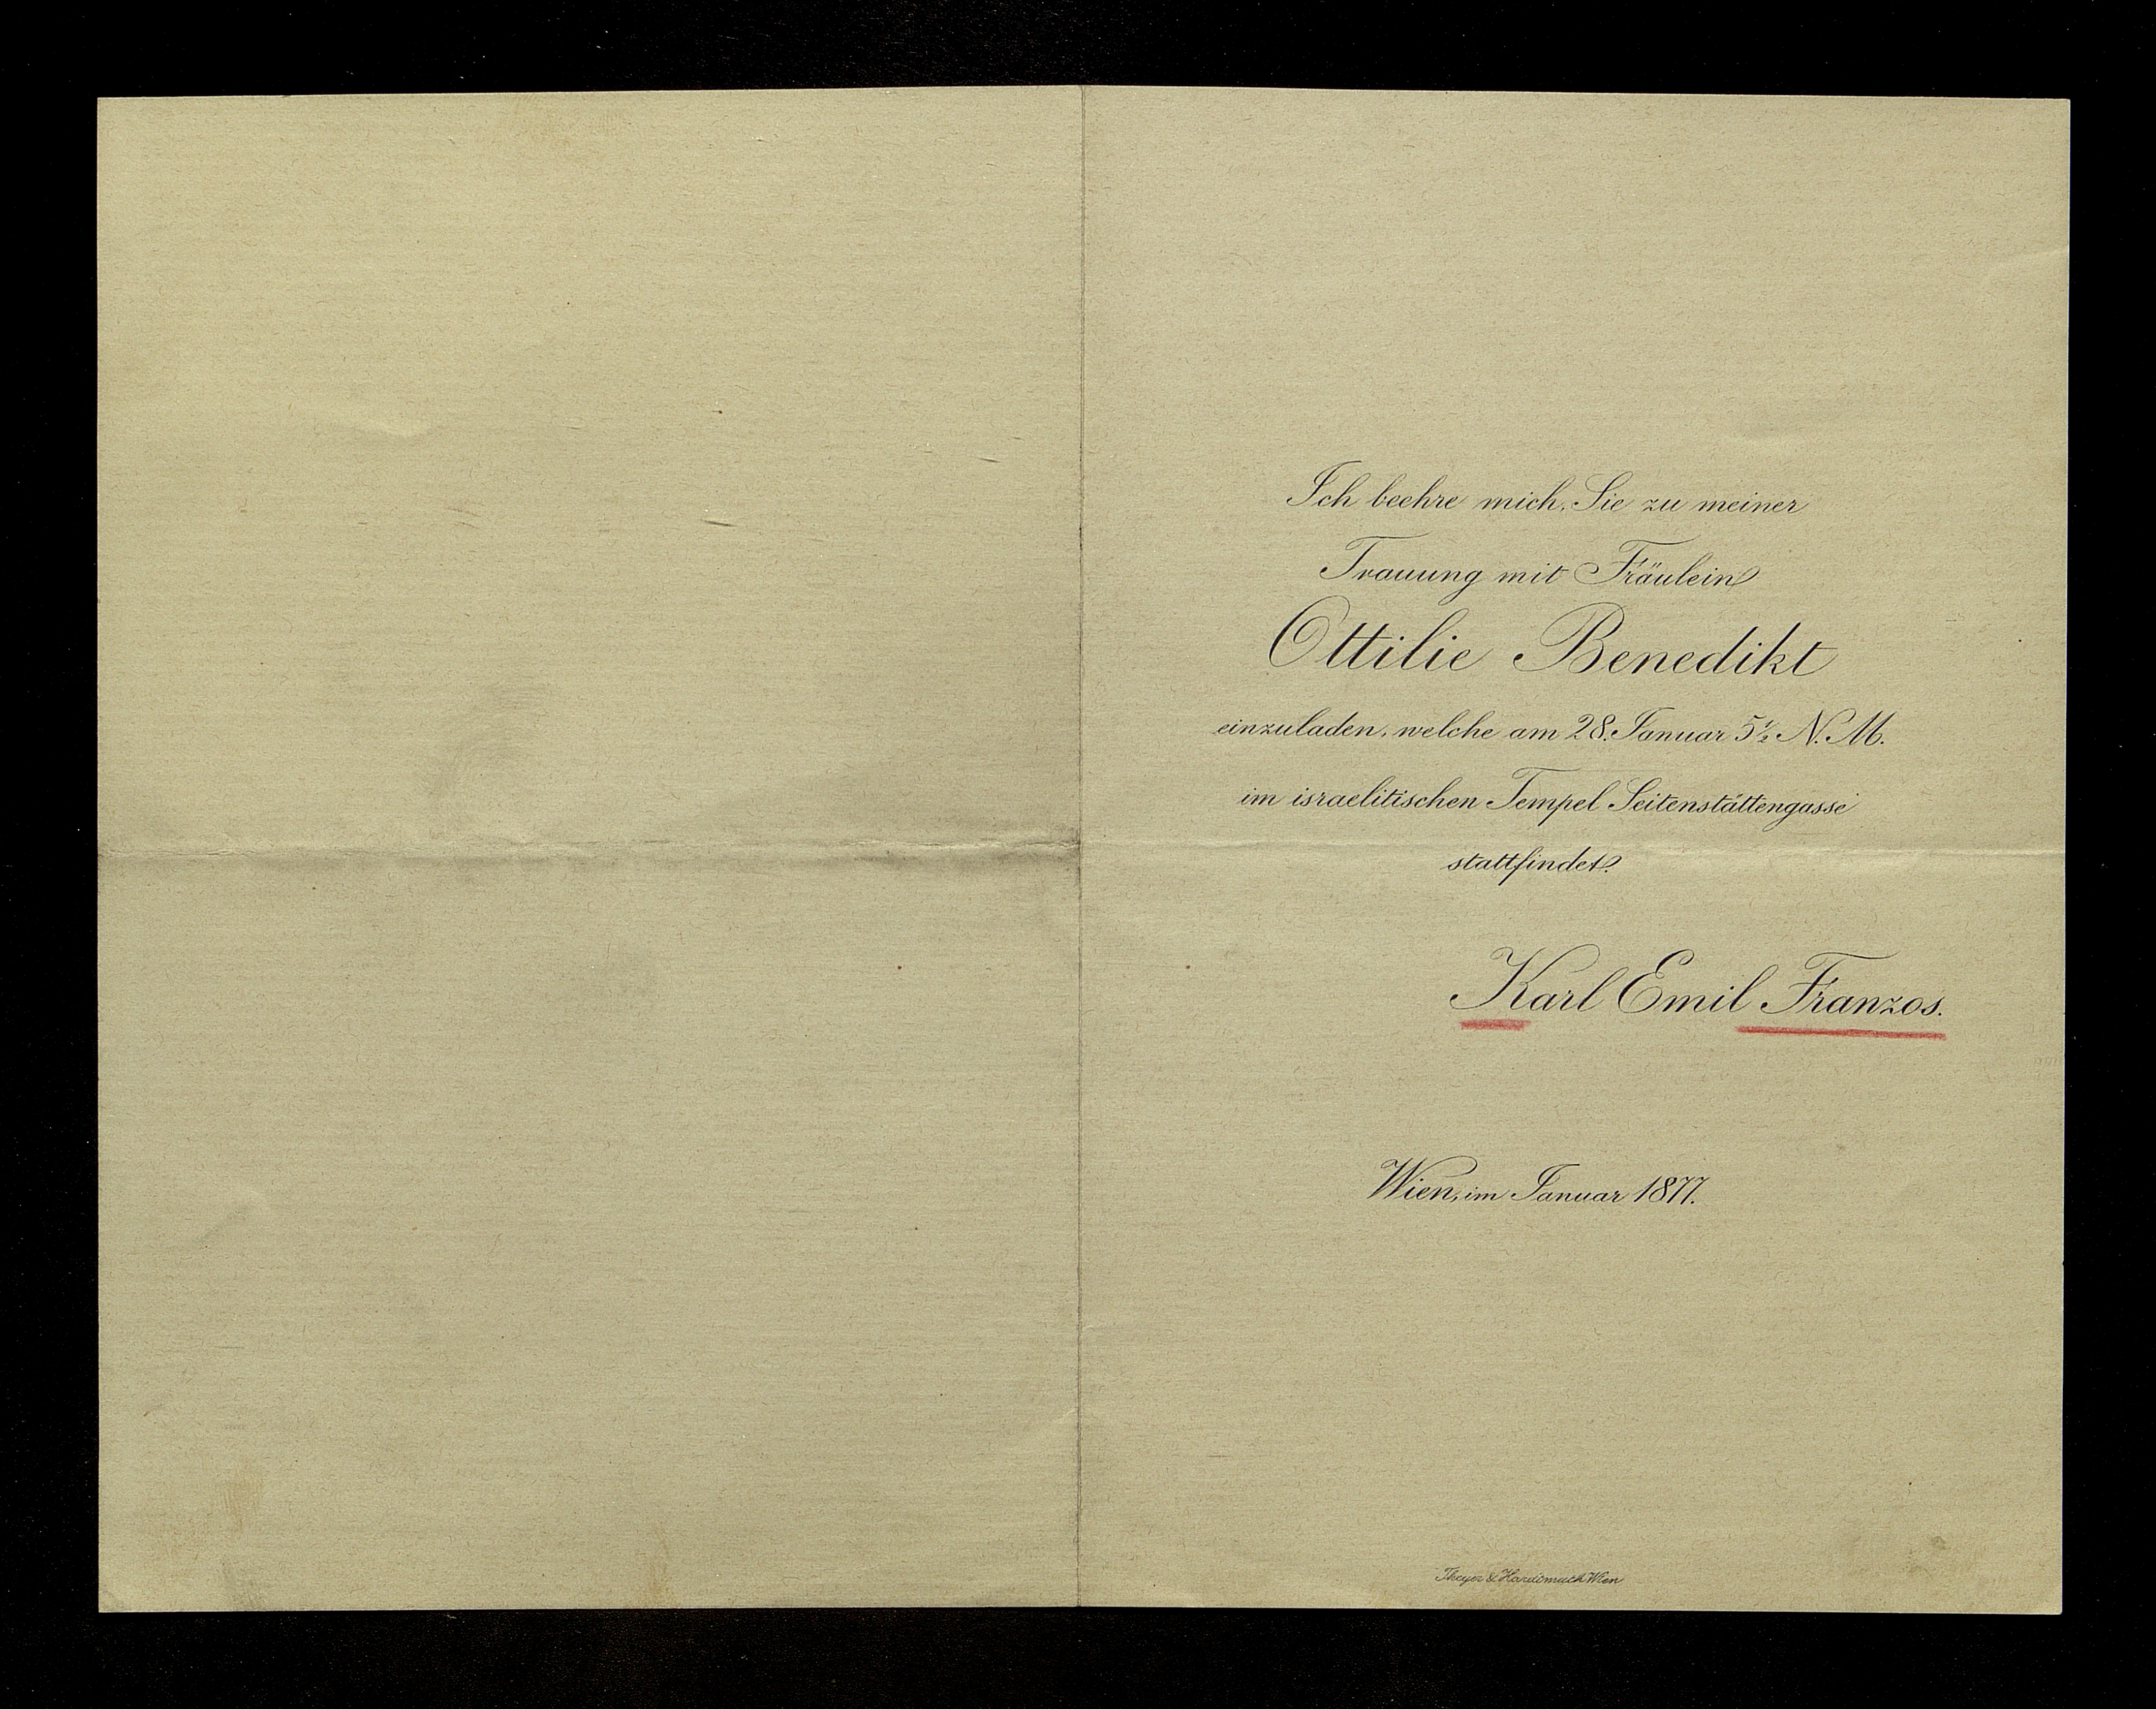 Ich beehre mich, Sie zu meiner
Trauung mit Fräulein
Ottilie Benedikt
einzuladen, welche am 28. Januar 5½ N. M.
im israelitischen Tempel Seitenstättengasse
stattfindet.
Karl Emil Franzos.
Wien, im Januar 1877.
Theyer & Hardtmuth Wien